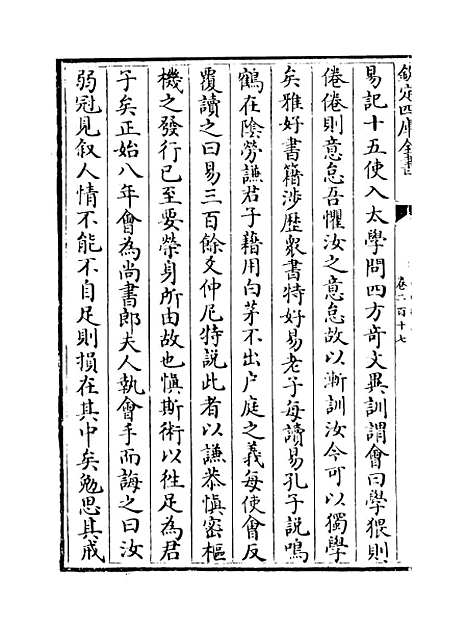 欽定四庫全書
卷二百十七
易記十五使入太學問四方奇文異訓謂會曰學猥則
倦倦則意怠吾懼汝之意怠故以漸訓汝今可以獨學
矣雅好書籍涉歷衆書特好易老子每讀易孔子說鳴
鶴在陰勞謙君子藉用白茅不出户庭之義每使會反
覆讀之曰易三百餘爻仲尼特說此者以謙恭慎密樞
機之發行已至要榮身所由故也慎斯術以徃足為君
子矣正始八年會為尚書郎夫人執會手而誨之曰汝
弱冠見叙人情不能不自足則損在其中矣勉思其戒